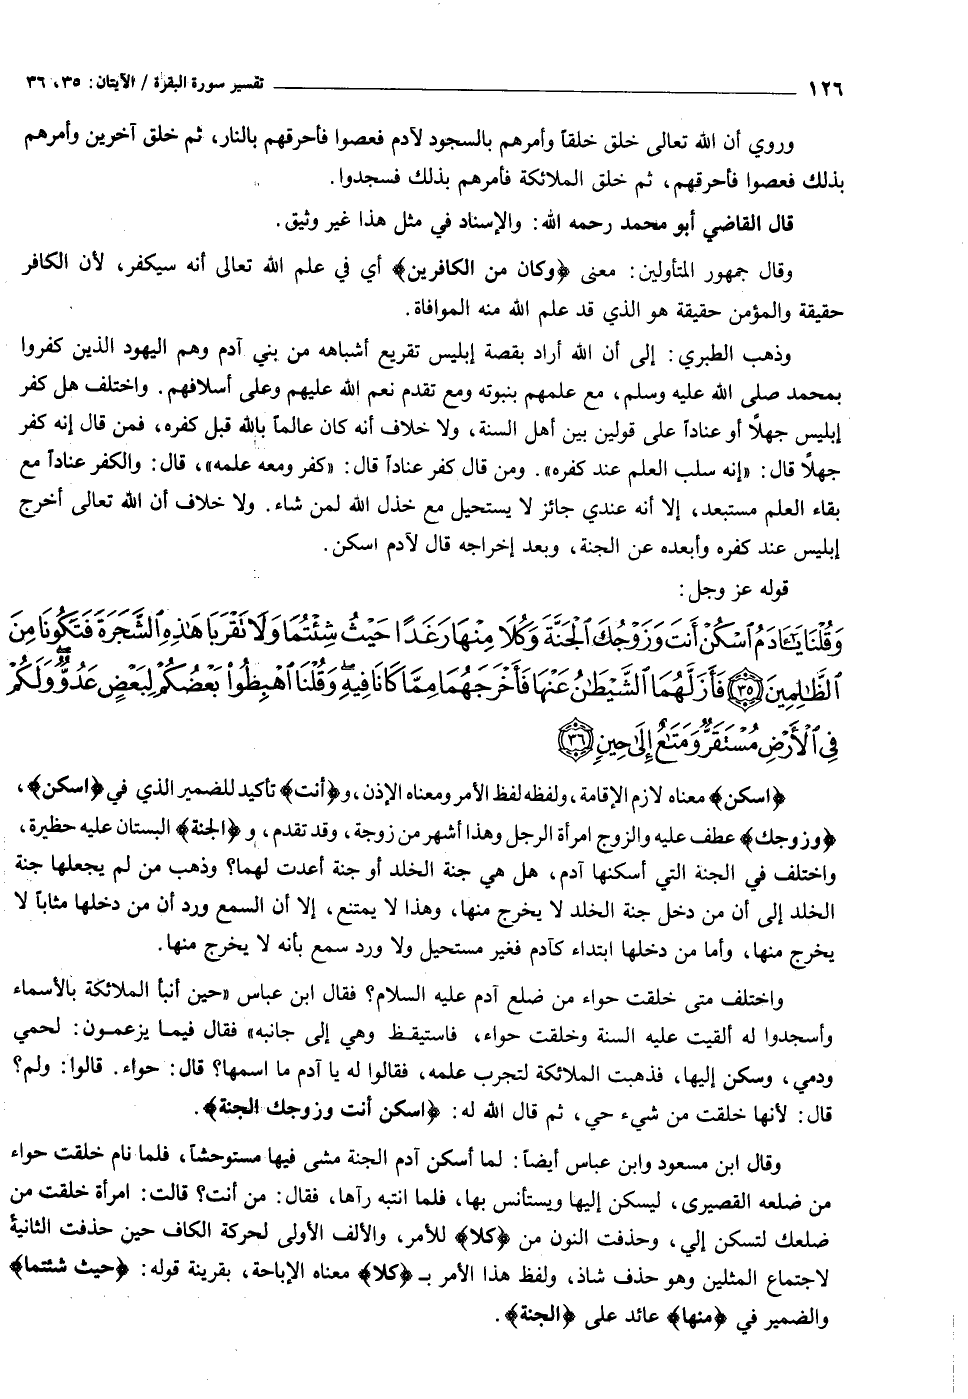 ١٢٦ تفسير سورة البقرة / الآيتان: ٣٥، ٣٦
وروي أن الله تعالى خلق خلقاً وأمرهم بالسجود لآدم فعصوا فأحرقهم بالنار، ثم خلق آخرين وأمرهم
بذلك فعصوا فأحرقهم، ثم خلق الملائكة فأمرهم بذلك فسجدوا.
قال القاضي أبو محمد رحمه الله: والإسناد في مثل هذا غير وثيق.
وقال جمهور المتأولين: معنى ﴿وكان من الكافرين﴾ أي في علم الله تعالى أنه سيكفر، لأن الكافر
حقيقة والمؤمن حقيقة هو الذي قد علم الله منه الموافاة.
وذهب الطبري: إلى أن الله أراد بقصة إبليس تقريع أشباهه من بني آدم وهم اليهود الذين كفروا
بمحمد صلى الله عليه وسلم، مع علمهم بنبوته ومع تقدم نعم الله عليهم وعلى أسلافهم. واختلف هل كفر
إبليس جهلاً أو عناداً على قولين بين أهل السنة، ولا خلاف أنه كان عالماً بالله قبل كفره، فمن قال إنه كفر
جهلاً قال: «إنه سلب العلم عند كفره». ومن قال كفر عناداً قال: «كفر ومعه علمه»، قال: والكفر عناداً مع
بقاء العلم مستبعد، إلا أنه عندي جائز لا يستحيل مع خذل الله لمن شاء. ولا خلاف أن الله تعالى أخرج
إبليس عند كفره وأبعده عن الجنة، وبعد إخراجه قال لآدم اسكن.
قوله عز وجل:
وَقُلْنَا يَـٰٓـَٔادَمُ ٱسْكُنْ أَنتَ وَزَوْجُكَ ٱلْجَنَّةَ وَكُلَا مِنْهَا رَغَدًا حَيْثُ شِئْتُمَا وَلَا تَقْرَبَا هَـٰذِهِ ٱلشَّجَرَةَ فَتَكُونَا مِنَ
ٱلظَّـٰلِمِينَ ﴿٣٥﴾ فَأَزَلَّهُمَا ٱلشَّيْطَـٰنُ عَنْهَا فَأَخْرَجَهُمَا مِمَّا كَانَا فِيهِ ۖ وَقُلْنَا ٱهْبِطُوا۟ بَعْضُكُمْ لِبَعْضٍ عَدُوٌّ ۖ وَلَكُمْ
فِى ٱلْأَرْضِ مُسْتَقَرٌّ وَمَتَـٰعٌ إِلَىٰ حِينٍ ﴿٣٦﴾
﴿اسكن﴾ معناه لازم الإقامة، ولفظه لفظ الأمر ومعناه الإذن، و﴿أنت﴾ تأكيد للضمير الذي في ﴿اسكن﴾،
﴿وزوجك﴾ عطف عليه والزوج امرأة الرجل وهذا أشهر من زوجة، وقد تقدم، و﴿الجنة﴾ البستان عليه حظيرة،
واختلف في الجنة التي أسكنها آدم، هل هي جنة الخلد أو جنة أعدت لهما؟ وذهب من لم يجعلها جنة
الخلد إلى أن من دخل جنة الخلد لا يخرج منها، وهذا لا يمتنع، إلا أن السمع ورد أن من دخلها مثاباً لا
يخرج منها، وأما من دخلها ابتداء كآدم فغير مستحيل ولا ورد سمع بأنه لا يخرج منها.
واختلف متى خلقت حواء من ضلع آدم عليه السلام؟ فقال ابن عباس «حين أنبأ الملائكة بالأسماء
وأسجدوا له ألقيت عليه السنة وخلقت حواء، فاستيقظ وهي إلى جانبه» فقال فيما يزعمون: لحمي
ودمي، وسكن إليها، فذهبت الملائكة لتجرب علمه، فقالوا له يا آدم ما اسمها؟ قال: حواء. قالوا: ولم؟
قال: لأنها خلقت من شيء حي، ثم قال الله له: ﴿اسكن أنت وزوجك الجنة﴾.
وقال ابن مسعود وابن عباس أيضاً: لما أسكن آدم الجنة مشى فيها مستوحشاً، فلما نام خلقت حواء
من ضلعه القصيرى، ليسكن إليها ويستأنس بها، فلما انتبه رآها، فقال: من أنت؟ قالت: امرأة خلقت من
ضلعك لتسكن إلي، وحذفت النون من ﴿كلا﴾ للأمر، والألف الأولى لحركة الكاف حين حذفت الثانية
لاجتماع المثلين وهو حذف شاذ، ولفظ هذا الأمر بـ ﴿كلا﴾ معناه الإباحة، بقرينة قوله: ﴿حيث شئتما﴾
والضمير في ﴿منها﴾ عائد على ﴿الجنة﴾.